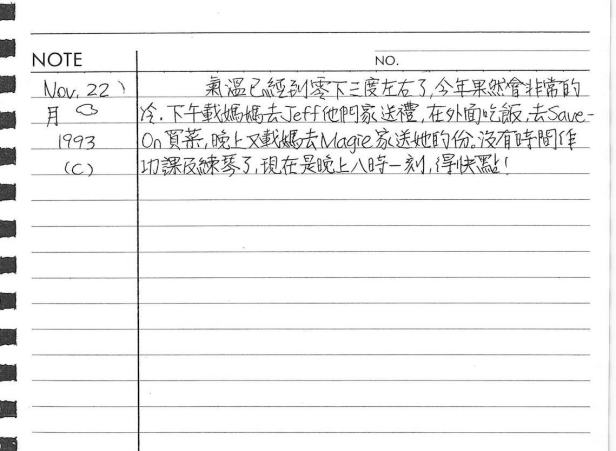 NOTE
NO.
Nov. 22
月
1993
(C)
氣溫已經到零下三度左右了,今年果然會非常的
冷.下午載媽媽去Jeff他們家送禮,在外面吃飯,去Save-
On買菜,晚上又載媽去Magie家送她的份。沒有時間作
功課及練琴了,現在是晚上八時一刻,得快點!